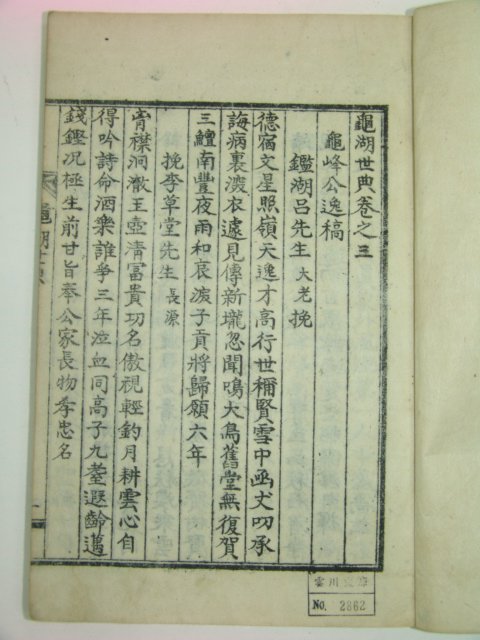 龜湖世典卷之三
龜峰公逸稿
鑑湖呂先生 大老 挽
德宿文星照嶺天逸才高行世稱賢雪中函丈叨承
誨病裏濃衣遽見傳新壠忽聞鳴大鳥舊堂無復賀
三鱣南豐夜雨和哀淚子貢將歸願六年
挽李草堂先生 長源
胷襟洞澈玉壺淸富貴功名傲視輕釣月耕雲心自
得吟詩命酒樂誰爭三年泣血同高子九耋遐齡邁
錢鏗况極生前甘旨奉公家長物孝忠名
龜湖世典
No. 2862